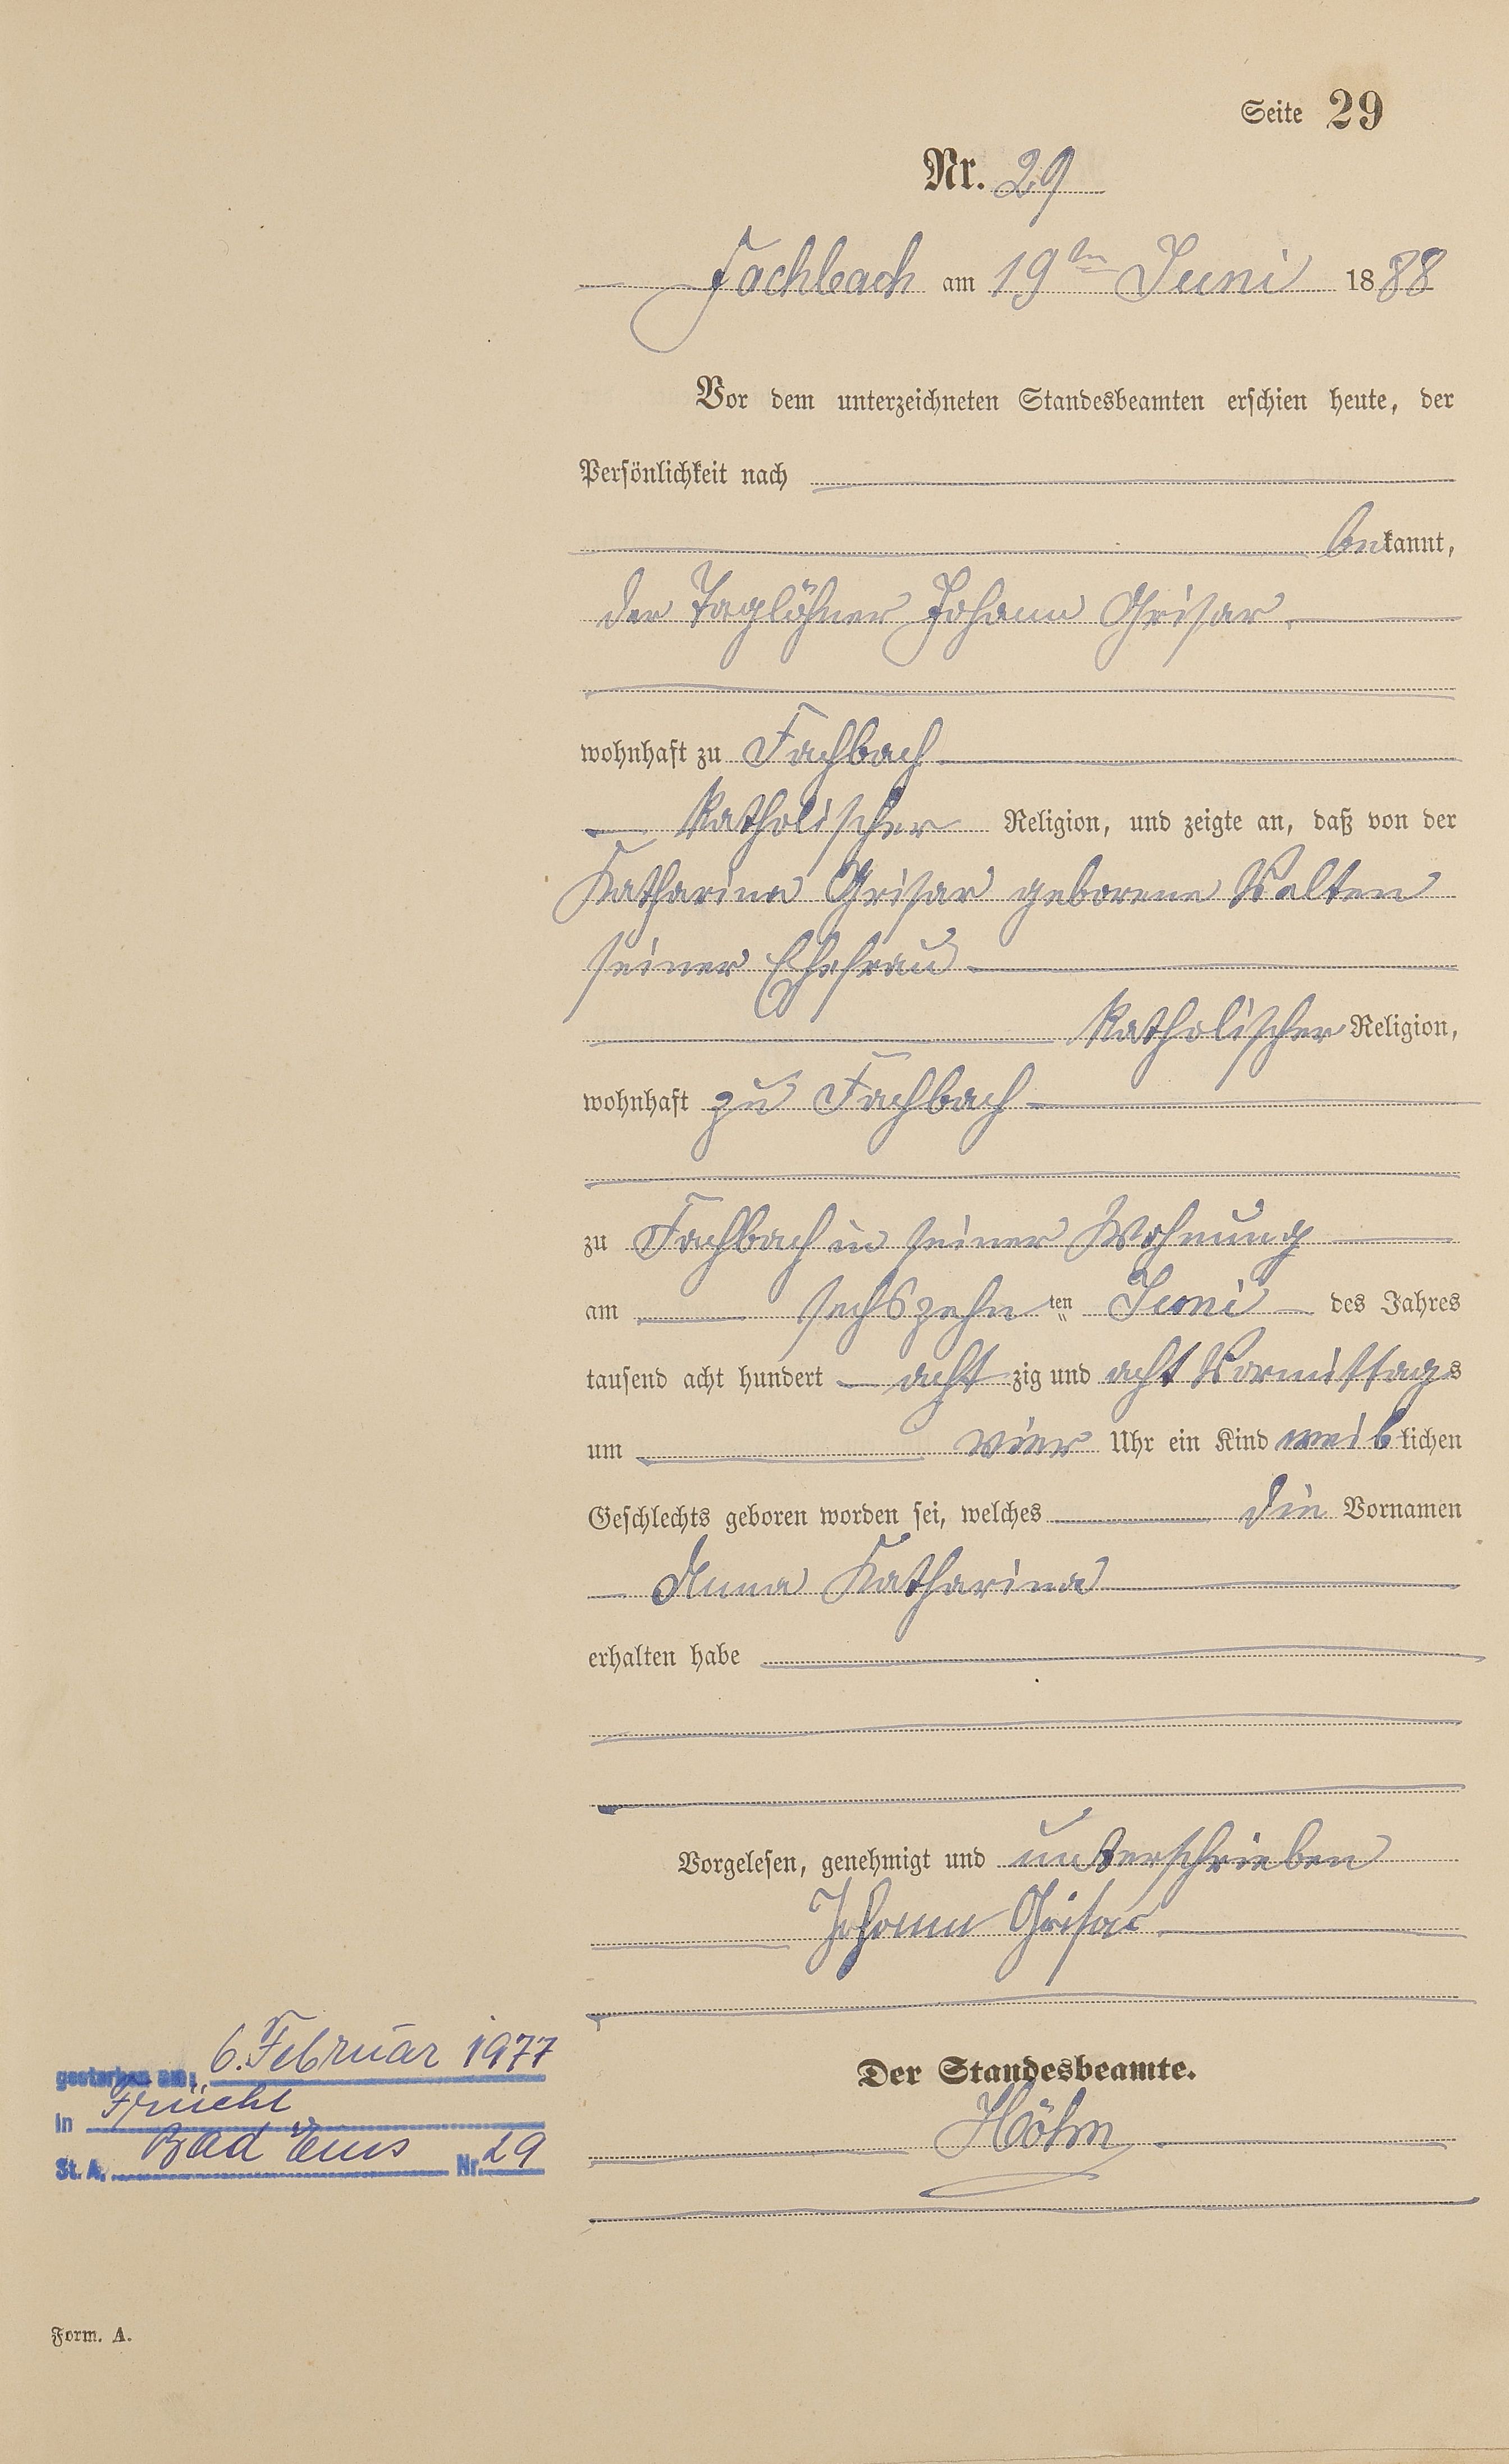 Seite 29
Nr. 29
Fachbach am 19ten Juni 1888
Vor dem unterzeichneten Standesbeamten erschien heute, der
Persönlichkeit nach
bekannt,
der Taglöhner Johann Grisar
wohnhaft zu Fachbach
katholischer Religion, und zeigte an, daß von der
Katharina Grisar geborene Valten
seiner Ehefrau
katholischer Religion,
wohnhaft zu Fachbach
zu Fachbach in seiner Wohnung
am sechszehn ten Juni des Jahres
tausend acht hundert acht zig und acht Vormittags
um vier Uhr ein Kind weiblichen
Geschlechts geboren worden sei, welches die Vornamen
Anna Katharina
erhalten habe
Vorgelesen, genehmigt und unterschrieben
Johann Grisar
Der Standesbeamte.
Höhn
gestorben am: 6. Februar 1977
in Frücht
St. A. Bad Ems Nr. 29
Form. A.